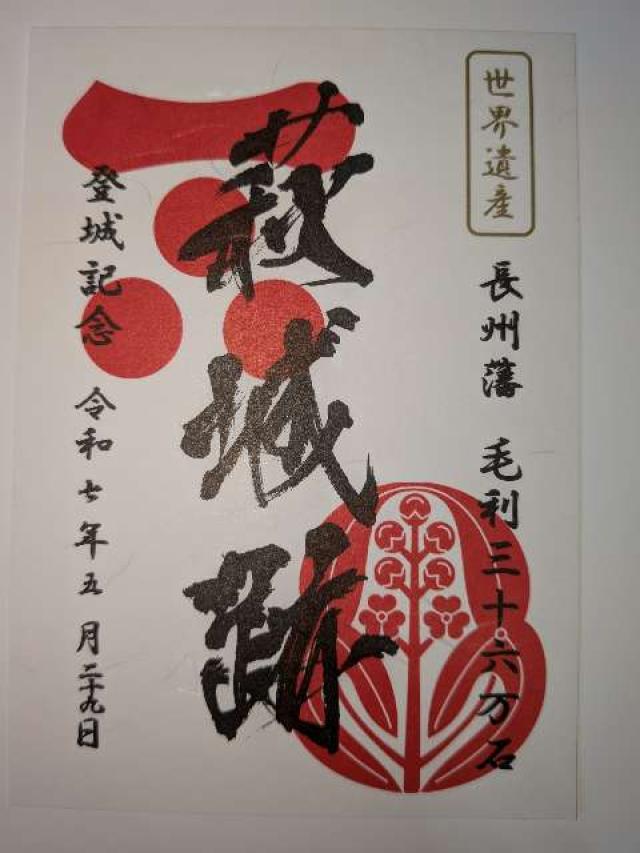 世界遺産
長州藩 毛利三十六万石
萩城跡
登城記念 令和七年五月二十九日